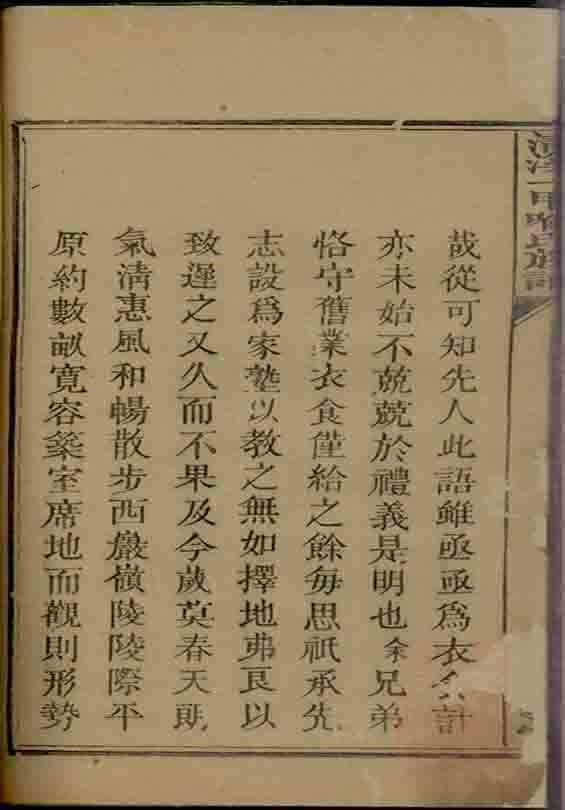 哉從可知先人此語雖亟亟爲衣食計
亦未始不兢兢於禮義是明也余兄弟
恪守舊業衣食僅給之餘每思祇承先
志設爲家塾以教之無如擇地弗良以
致遲之又久而不果及今歲莫春天朗
氣淸惠風和暢散步西巖嶺陵陵際平
原約數畝寬容築室席地而觀則形勢